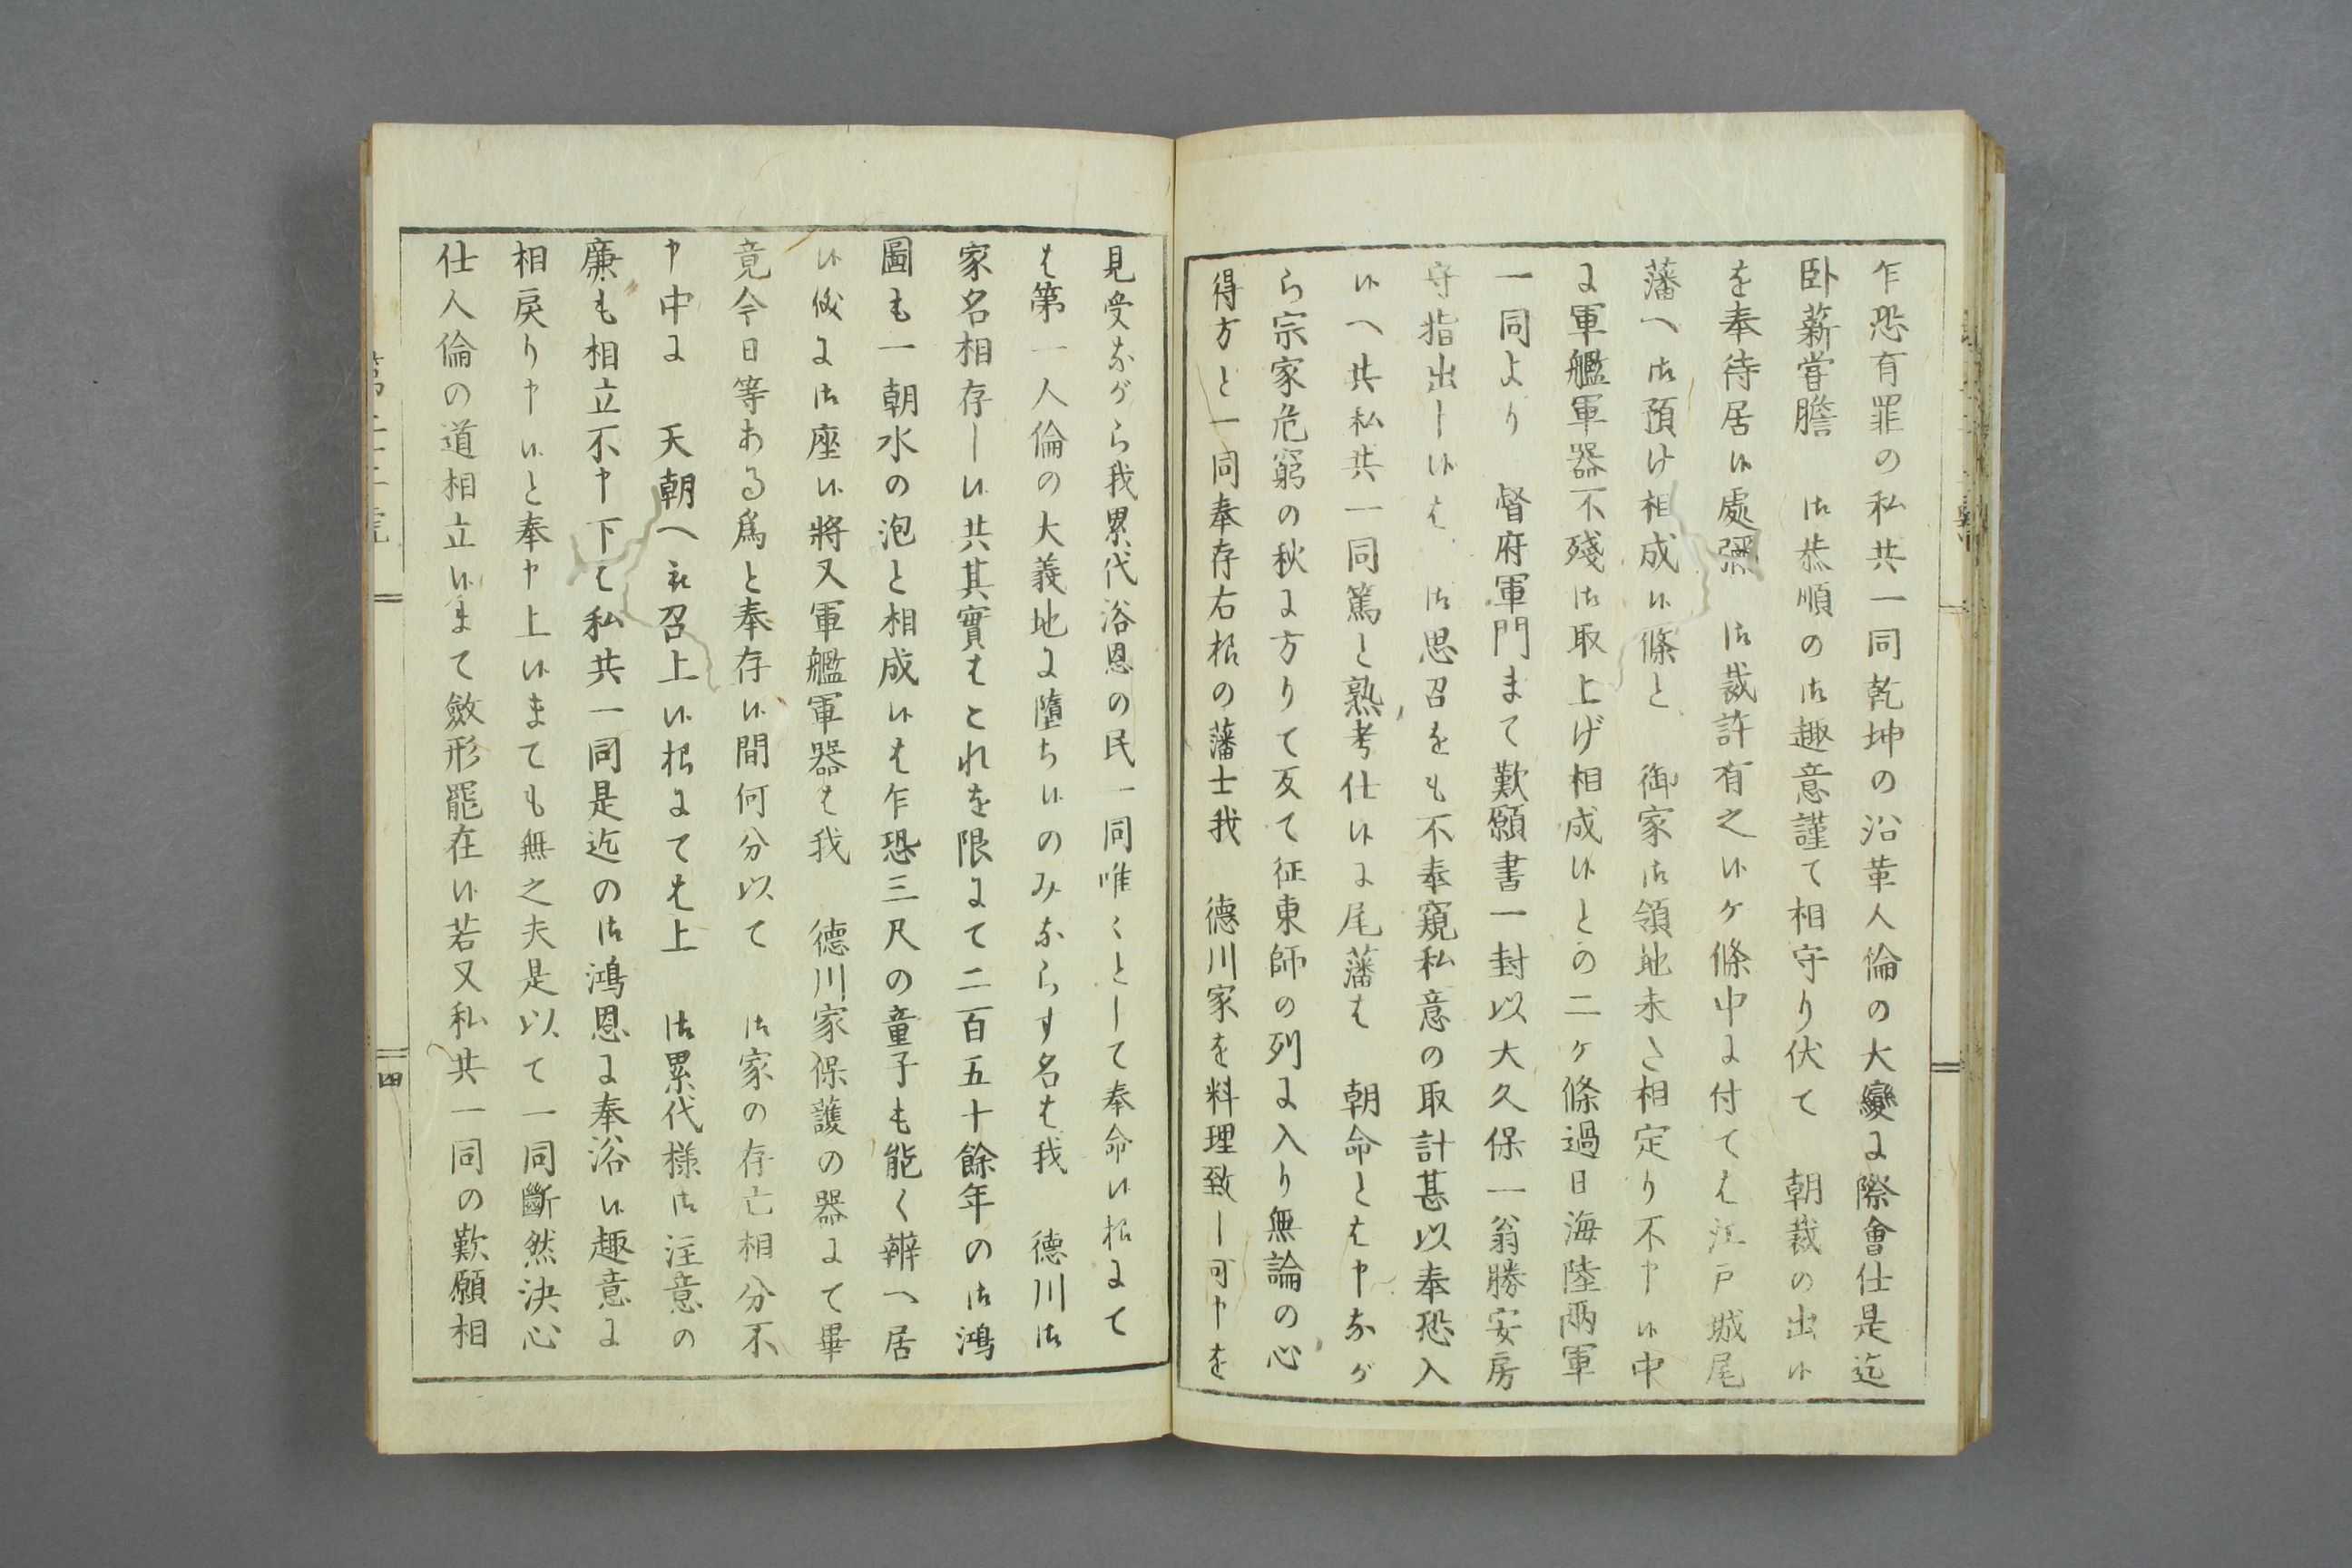 乍恐有罪の私共一同乾坤の沿革人倫の大變に際會仕是迄
卧薪甞膽　御恭順の御趣意謹て相守り伏て　朝裁の出候
を奉待居候處彌　御裁許有之候ケ條中に付ては江戸城尾
藩へ御預け相成候條と　御家御領地未た相定り不申候中
に軍艦軍器不殘御取上げ相成候との二ケ條過日海陸兩軍
一同より　督府軍門まて歎願書一封以大久保一翁勝安房
守指出し候は　御思召をも不奉窺私意の取計甚以奉恐入
候へ共私共一同篤と熟考仕候に尾藩は　朝命とは申なが
ら宗家危窮の秋に方りて反て征東師の列に入り無論の心
得方と一同奉存右樣の藩士我　德川家を料理致し可申を
見受ながら我累代浴恩の民一同唯々として奉命候樣にて
は第一人倫の大義地に墮ち候のみならす名は我　德川御
家名相存し候共其實はこれを限にて二百五十餘年の御鴻
圖も一朝水の泡と相成候は乍恐三尺の童子も能く辨へ居
候儀に御座候將又軍艦軍器は我　德川家保護の器にて畢
竟今日等ある爲と奉存候間何分以て　御家の存亡相分不
申中に　天朝へ被召上候樣にては上　御累代樣御注意の
廉も相立不申下は私共一同是迄の御鴻恩に奉浴候趣意に
相戻り申候と奉申上候まても無之夫是以て一同斷然決心
仕人倫の道相立候まて斂形罷在候若又私共一同の歎願相
四